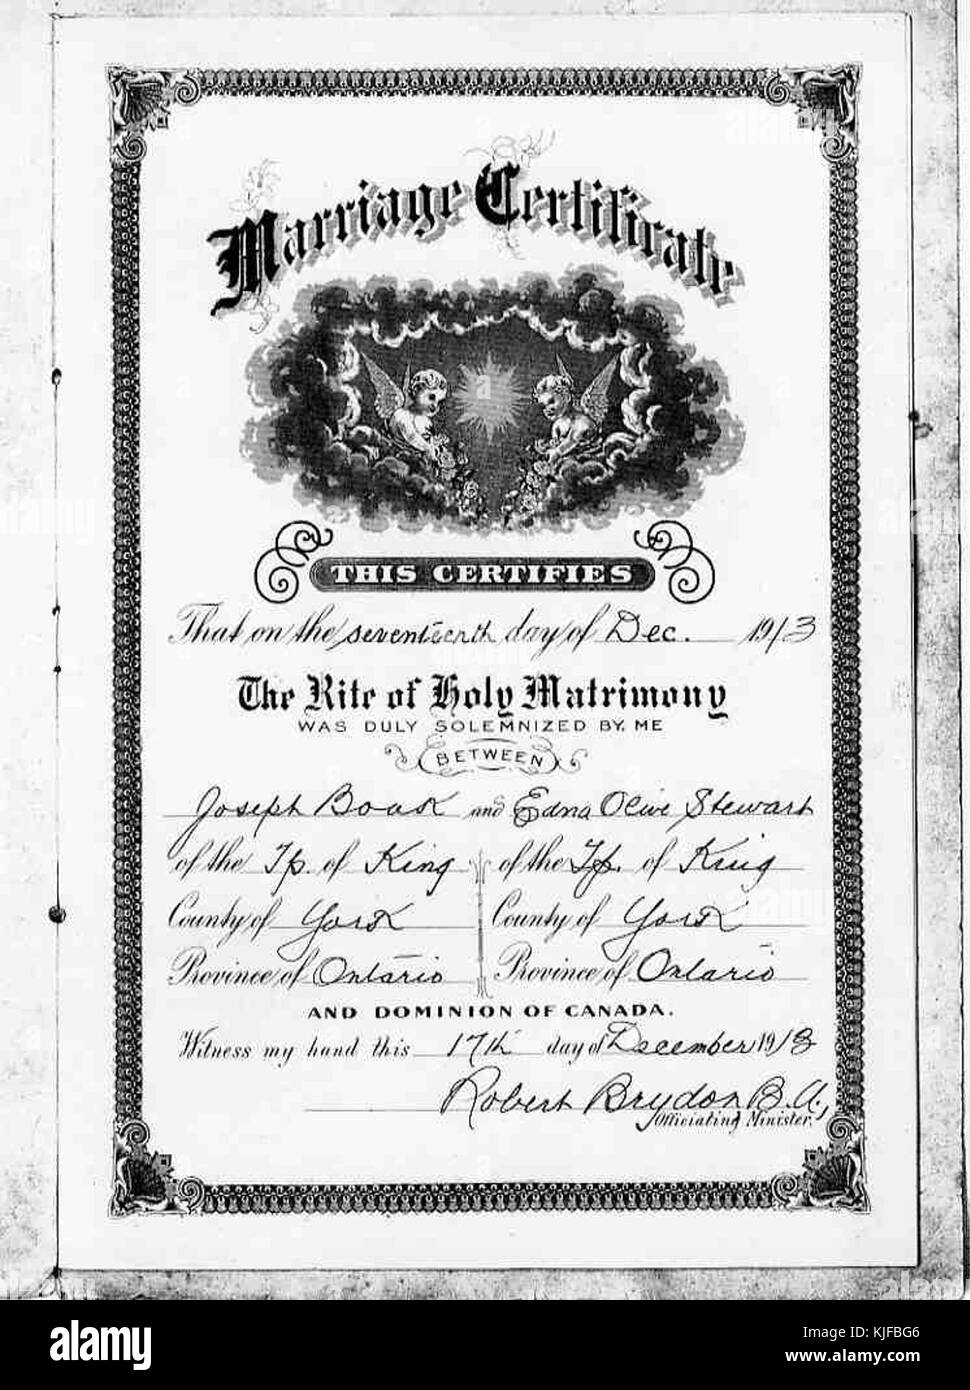 Marriage Certificate
THIS CERTIFIES
That on the seventeenth day of Dec. 1913
The Rite of Holy Matrimony
WAS DULY SOLEMNIZED BY ME
BETWEEN
Joseph Boak and Edna Olive Stewart
of the Tp. of King of the Tp. of King
County of York County of York
Province of Ontario Province of Ontario
AND DOMINION OF CANADA.
Witness my hand this 17th day of December 1913
Robert Brydon B.A.,
Officiating Minister.
alamy
Image ID: KJFBG6
www.alamy.com